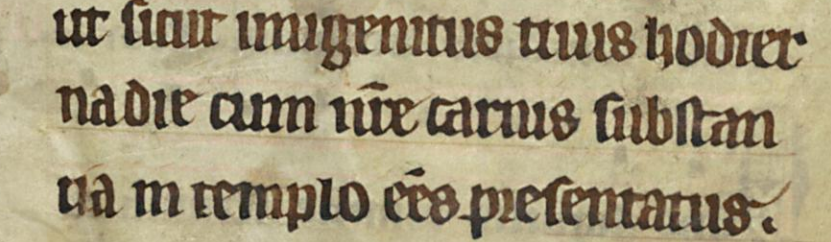 ut sicut unigenitus tuus hodier
na die cum nr̄e carnis substan
tia in templo eēs presentatus.